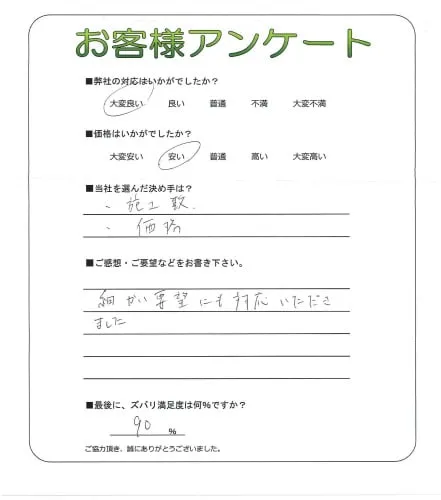 お客様アンケート
■弊社の対応はいかがでしたか?
大変良い 良い 普通 不満 大変不満
■価格はいかがでしたか?
大変安い 安い 普通 高い 大変高い
■当社を選んだ決め手は?
・施工数
・価格
■ご感想・ご要望などをお書き下さい。
細かい要望にも対応いただき
ました
■最後に、ズバリ満足度は何%ですか?
90 %
ご協力頂き、誠にありがとうございました。